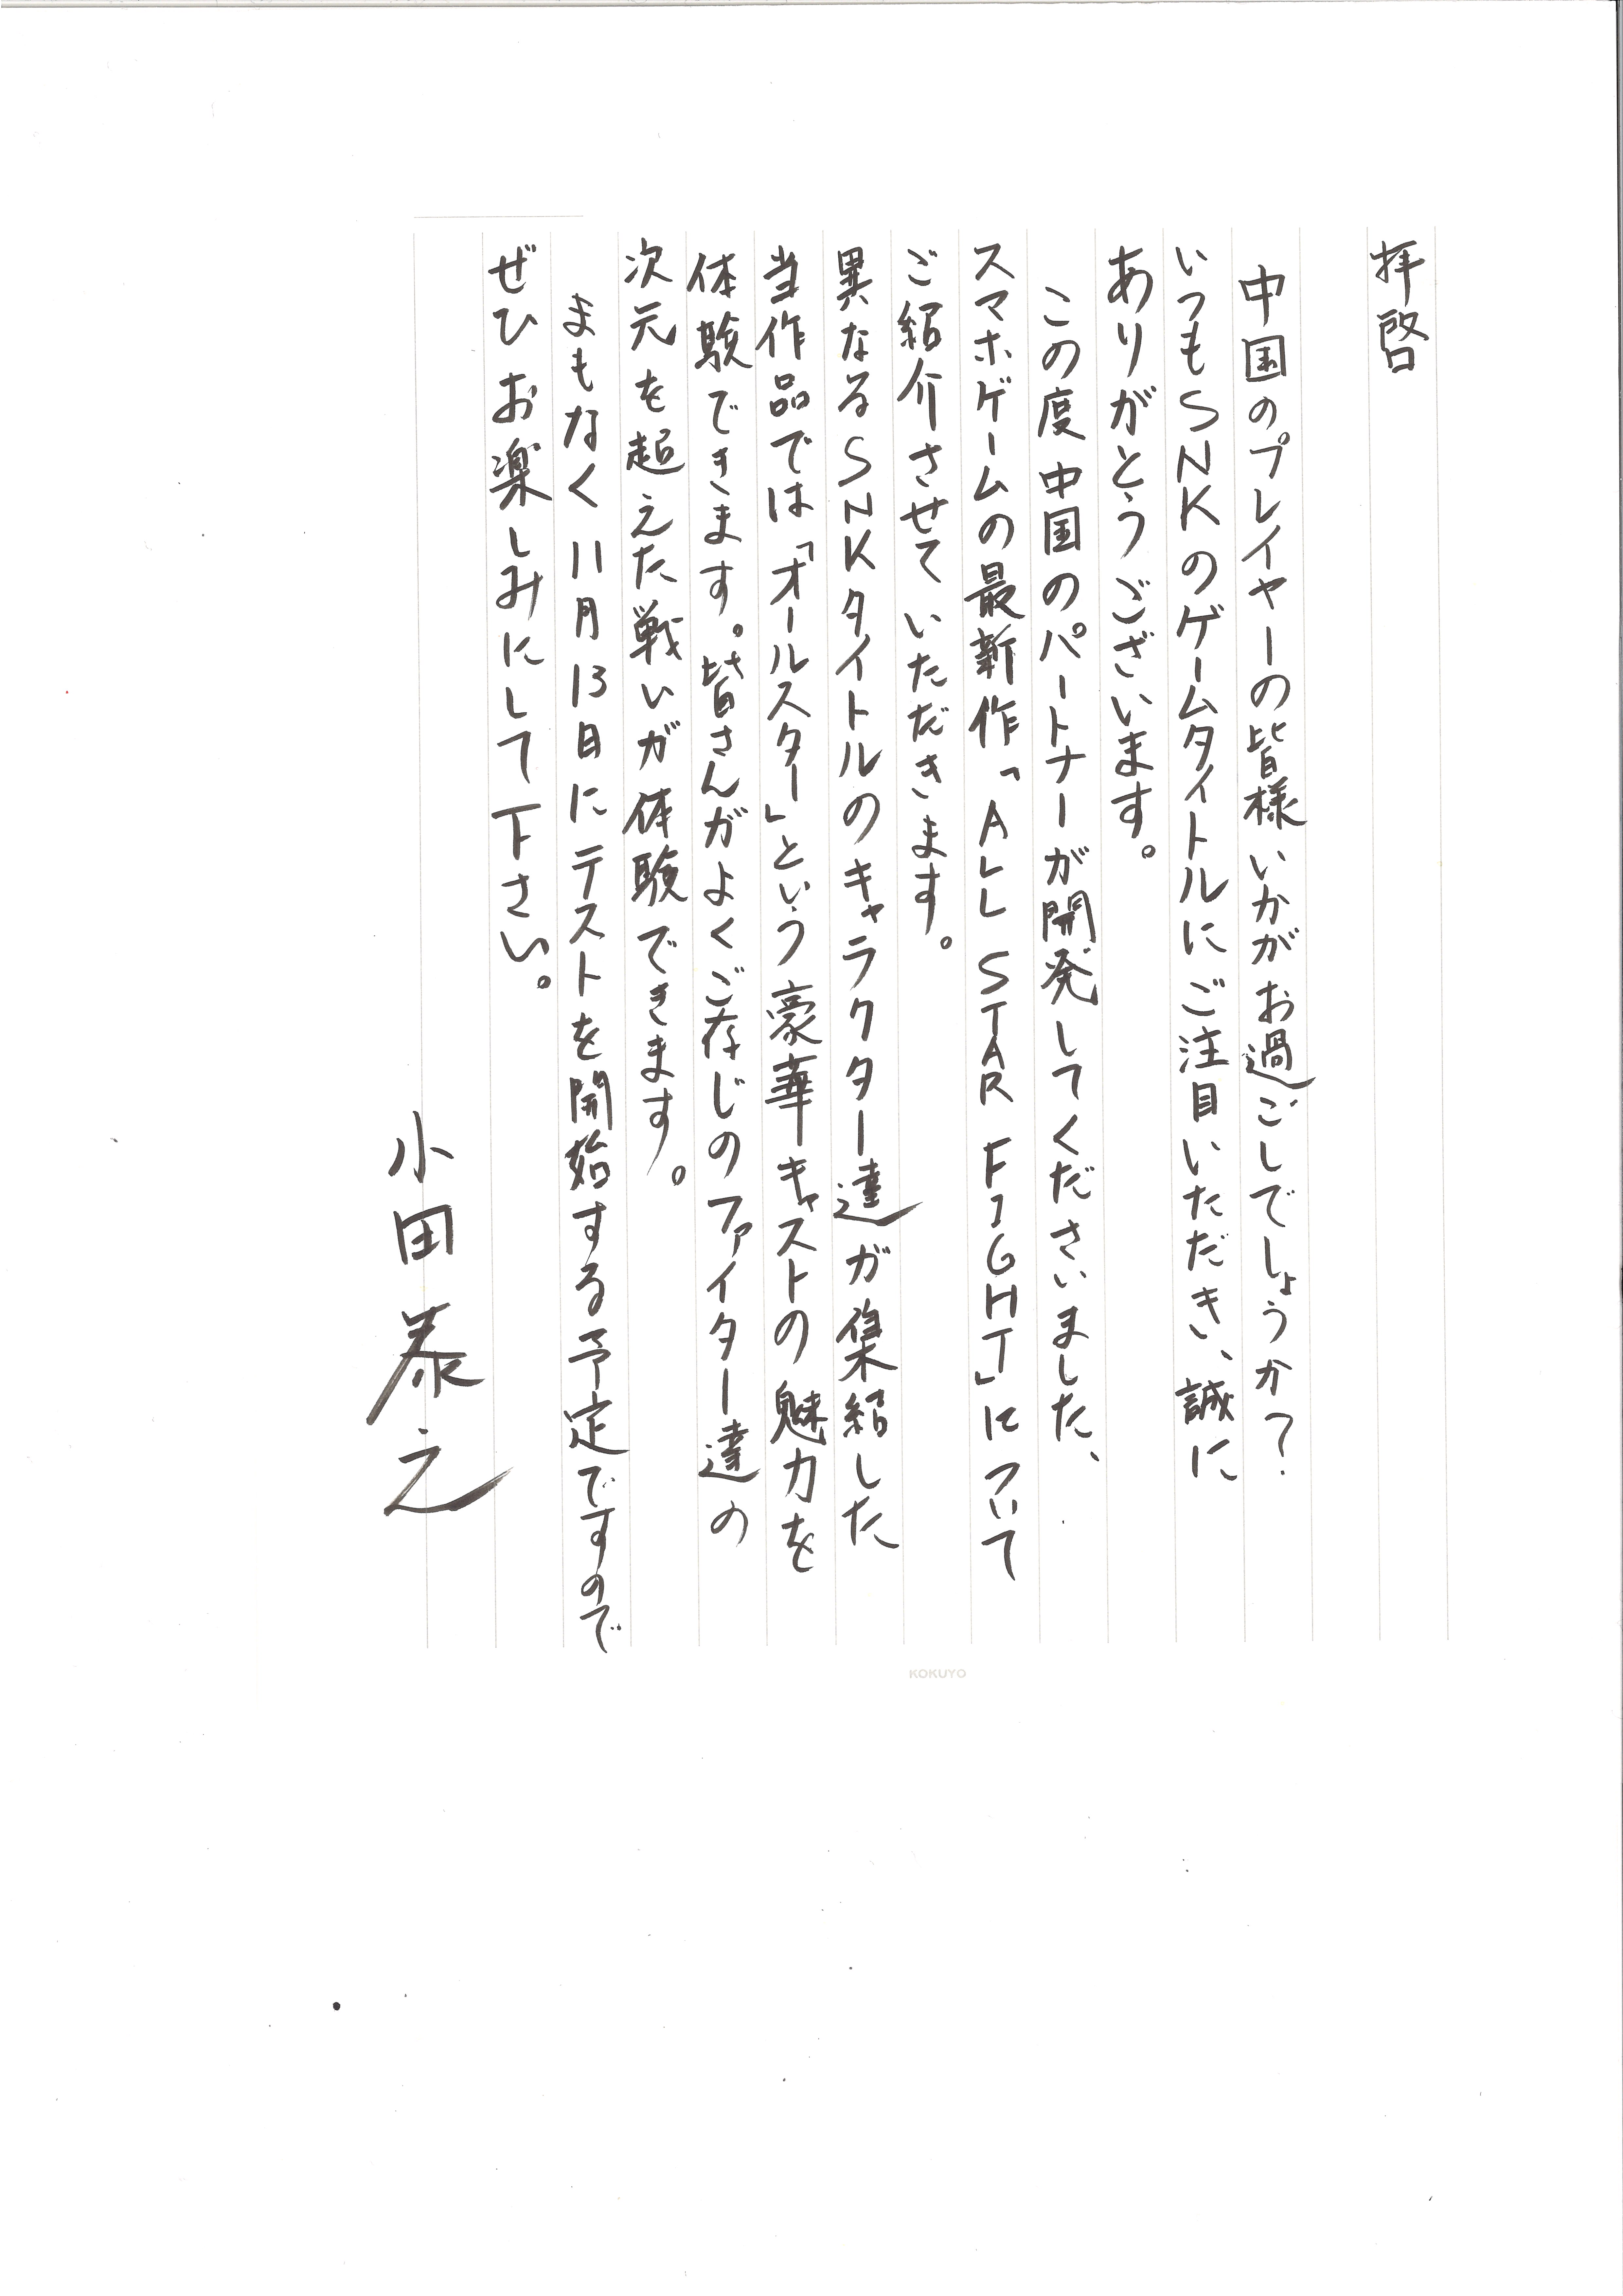 拝啓
中国のプレイヤーの皆様いかがお過ごしでしょうか?
いつもSNKのゲームタイトルにご注目いただき、誠に
ありがとうございます。
この度中国のパートナーが開発してくださいました、
スマホゲームの最新作「ALL STAR FIGHT」について
ご紹介させていただきます。
異なるSNKタイトルのキャラクター達が集結した
当作品では「オールスター」という豪華キャストの魅力を
体験できます。皆さんがよくご存じのファイター達の
次元を超えた戦いが体験できます。
まもなく11月13日にテストを開始する予定ですので
ぜひお楽しみにして下さい。
小田泰之
KOKUYO